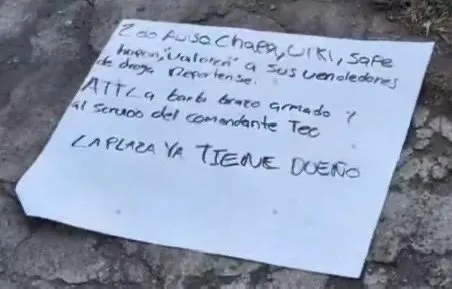 2do Aviso Chapa, WIKI, Sape
huevon, "valoren" a sus vendedores
de droga Reportense.
ATT La barbi brazo armado y
al servicio del comandante Teo
LA PLAZA YA TIENE DUEÑO